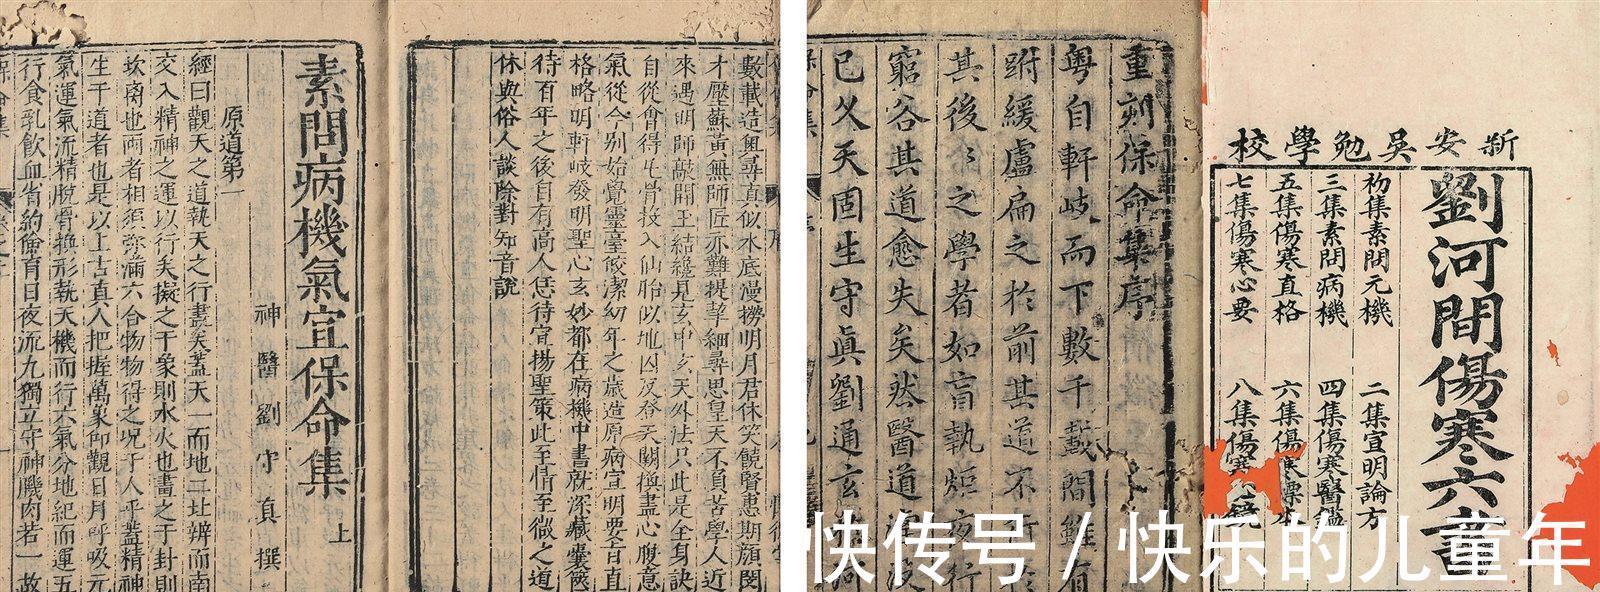 新安吳勉學校
劉河間傷寒六書
初集素問元機 二集宣明論方
三集素問病機 四集傷寒醫鑑
五集傷寒直格 六集傷寒標本
七集傷寒心要 八集傷寒 鏡
重刻保命集序
粵自軒岐而下數千載間雖有
跗緩盧扁之於前其道不行於
其後〻之學者如盲執炬夜行
窮谷其道愈失矣然醫道湮沒
已久天固生守眞劉通玄 河
數載造輿尋真似水底漫撈明月君休笑饒賢惠期顏閔
才壓蘇黃無師匠亦難提挈細尋思皇天不負苦學人近
來遇明師敲開玉結緣見玄中玄天外法只此是全身訣
自從會得屯骨投入仙胎似地囚反登天關換盡心腹意
氣從今別始覺靈臺皎潔幼年之歲造原病宣明要旨直
格略明軒岐發明聖心玄妙都在病機中書就深藏囊篋
待百年之後自有高人恁待宣揚聖策此至情至微之道
休與俗人談除對知音說
素問病機氣宜保命集 上
神醫劉守真撰
原道第一
經曰觀天之道執天之行盡矣蓋天一而地二北辨而南
交入精神之運以行矣擬之于象則水火也畫之于封則
坎离也兩者相須弥滿六合物物得之况于人乎蓋精神
生于道者也是以上古真人把握萬象仰觀日月呼吸元
氣運氣流精脫骨換形執天機而行六氣分地紀而運五
行食乳飲血省約儉育日夜流光獨立守神肌肉若一故
快传号/快乐的儿童年